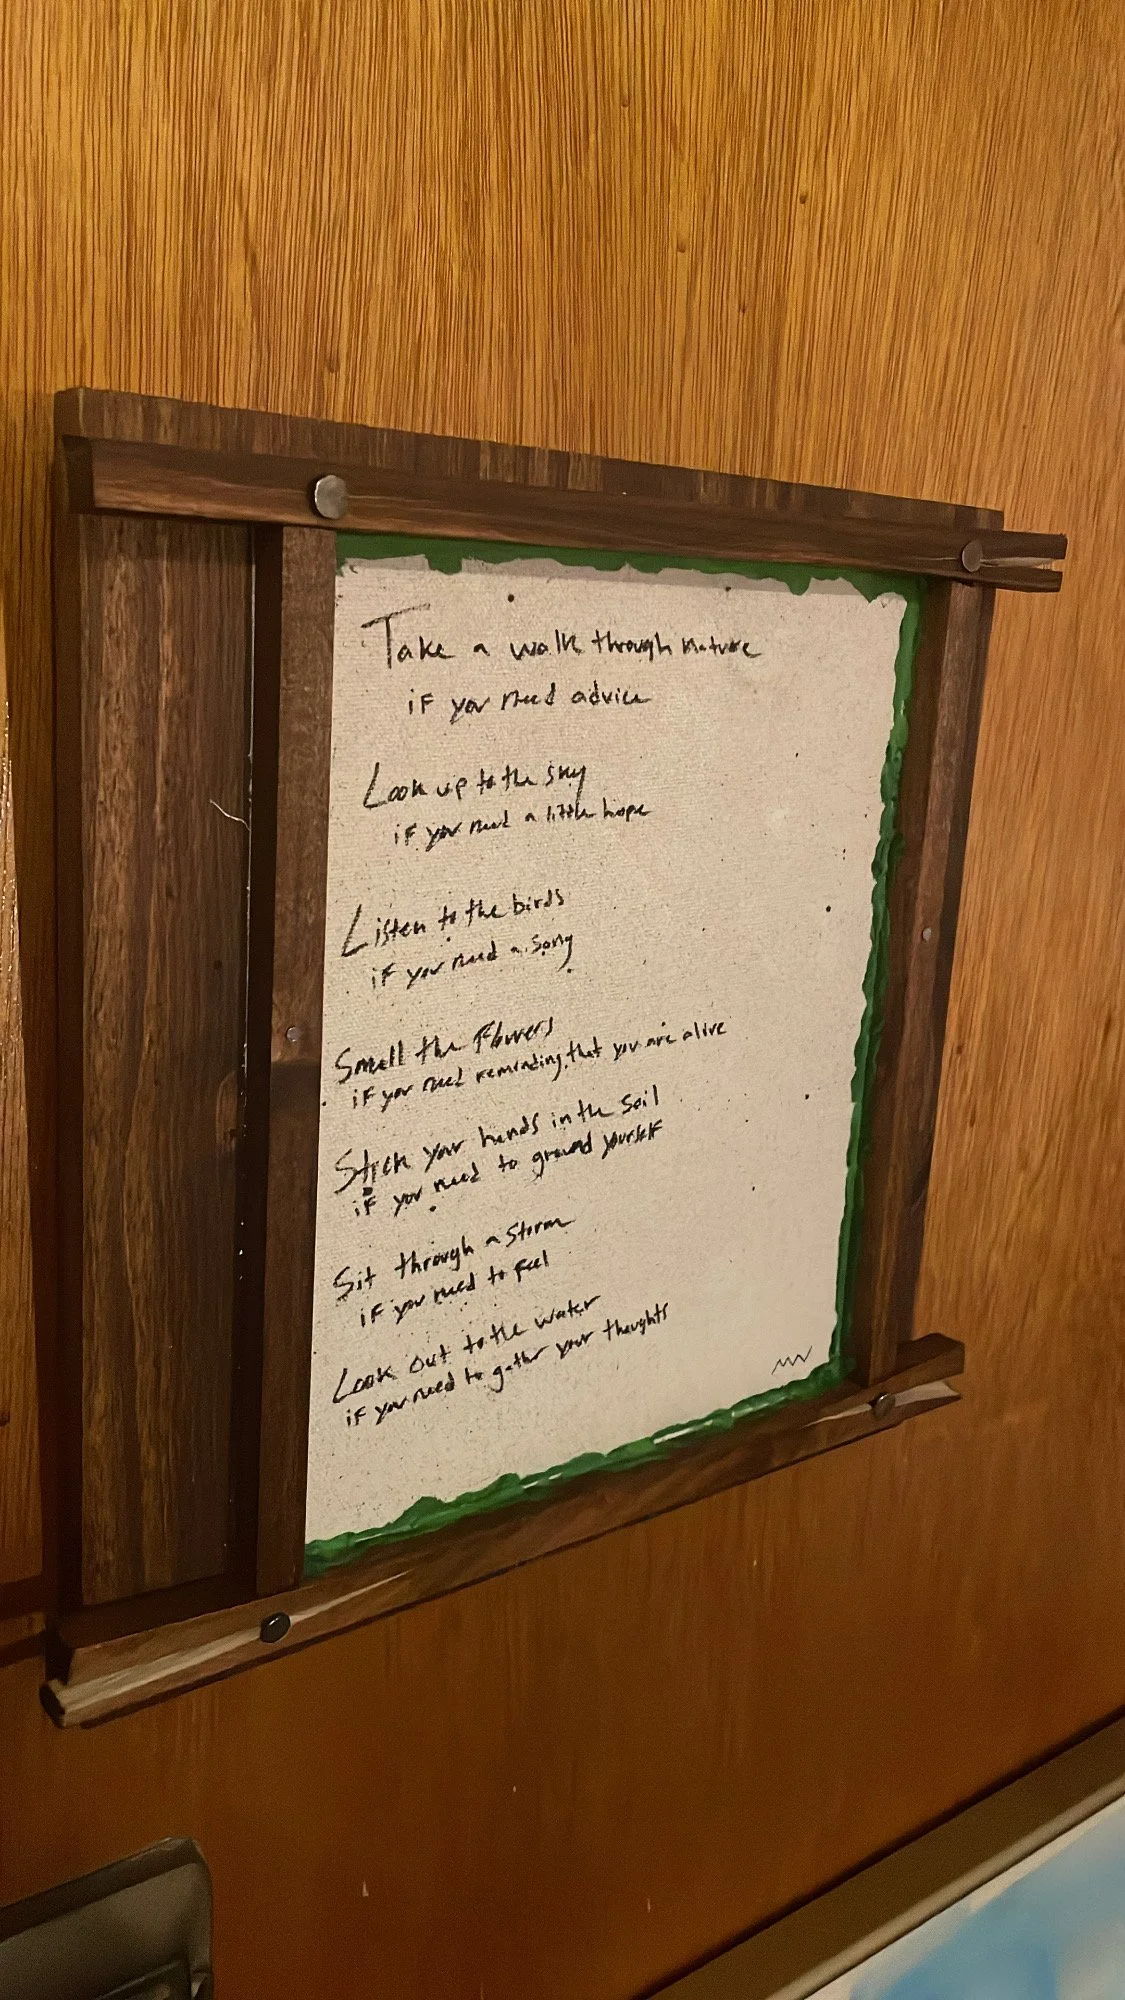 Take a walk through nature
if you need advice
Look up to the sky
if you need a little hope
Listen to the birds
if you need a song
Smell the flowers
if you need reminding that you are alive
Stick your hands in the soil
if you need to ground yourself
Sit through a storm
if you need to feel
Look out to the water
if you need to gather your thoughts